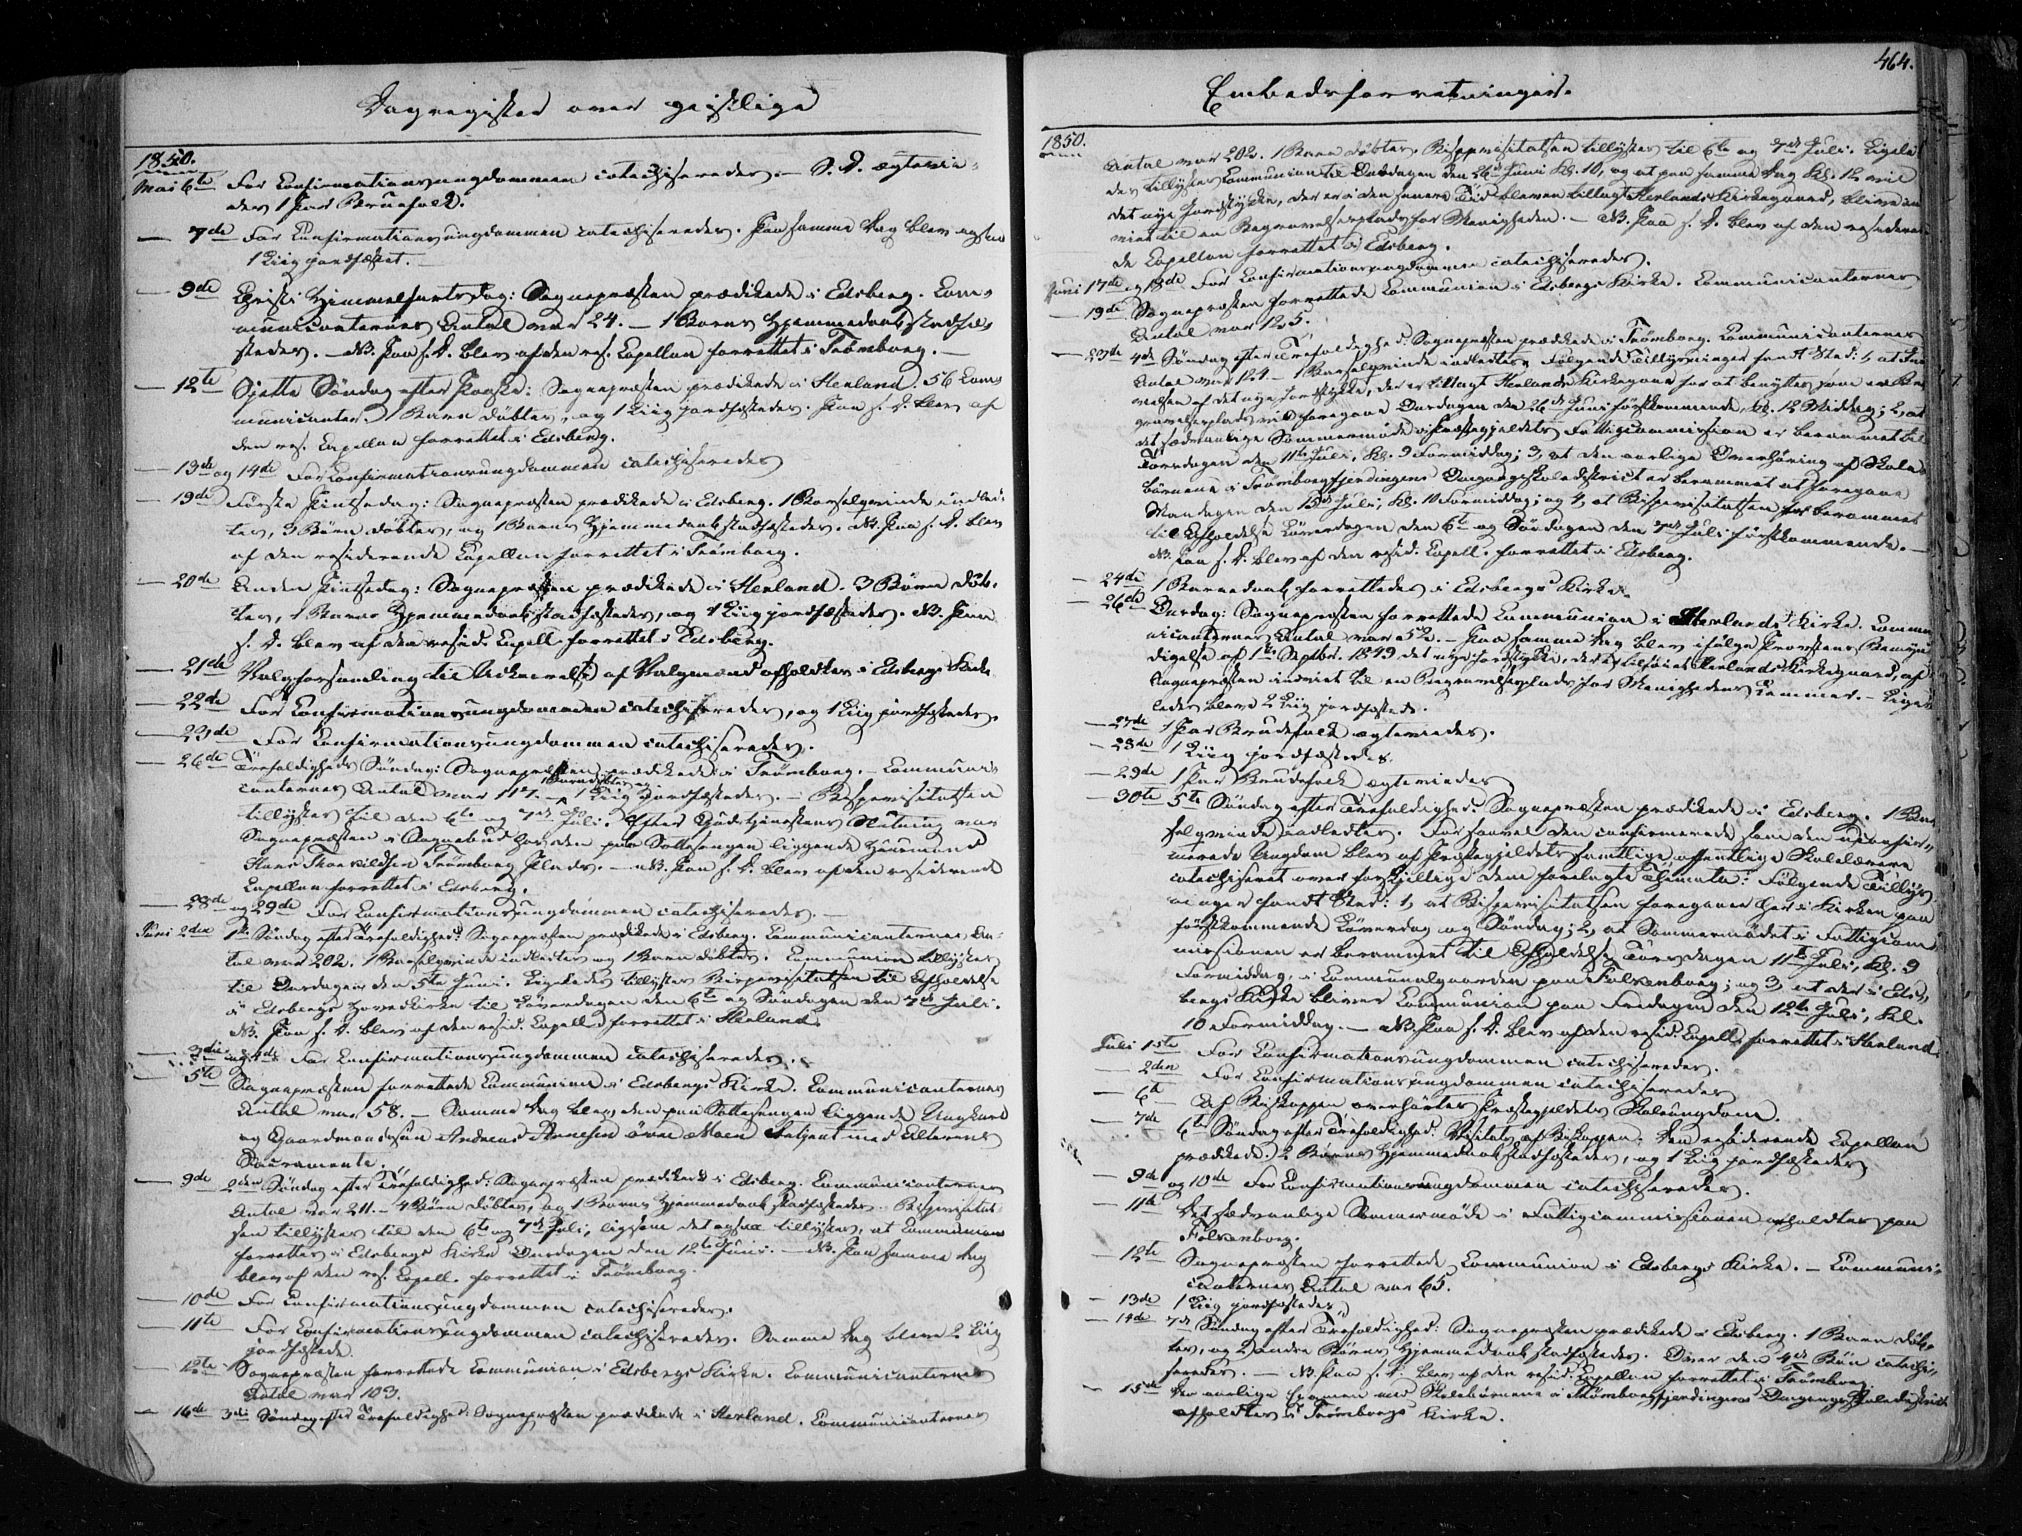 Dagregister over geistlige
1850.
Mai 6te For Confirmationsungdommen catechiseredes. — S. D. ægtevie-
des 1 Par Brudefolk.
— 7de For Confirmationsungdommen catechiseredes. Paa samme Dag blev ogsaa
1 Liig jordfæstet. —
— 9de Christi Himmelfartsdag: Sognepræsten prædikede i Edsberg. Com-
municanternes Antal var 24. — 1 Barns Hjemmedaab stadfæ-
stedes. — NB. Paa s. D. blev af den res. Capellan forrettet i Trømborg. —
— 12te Sjette Søndag efter Paaske: Sognepræsten prædikede i Herland. 56 Com-
municanter, 1 Barn døbtes, og 1 Liig jordfæstedes. Paa s. D. blev af
den res. Capellan forrettet i Edsberg.
— 13de og 14de For Confirmationsungdommen catechiseredes
— 19de Første Pintsedag: Sognepræsten prædikede i Edsberg. 1 Barselqvinde indled-
tes, 3 Børn døbtes, og 1 Barns Hjemmedaab stadfæstedes. NB. Paa s. D. blev
af den residerende Capellan forrettet i Trømborg.
— 20de Anden Pintsedag: Sognepræsten prædikede i Herland. 3 Børn døb-
tes, 1 Barns Hjemmedaab stadfæstedes, og 1 Liig jordfæstedes. NB. Paa
s. D. blev af den resid. Capell. forrettet i Edsberg.
— 21de Valgforsamling til Udnævnelse af Valgmænd afholdtes i Edsbergs Kirke
— 22de For Confirmationsungdommen catechiseredes, og 1 Liig jordfæstedes.
— 23de For Confirmationsungdommen catechiseredes.
— 26de Trefoldigheds Søndag: Sognepræsten prædikede i Trømborg. — Communi-
canternes Antal var 117. — 1 Barn døbtes, 1 Liig jordfæstedes. — Bispevisitatsen
tillystes til den 6te og 7de Juli. Efter Gudstjenestens Slutning var
Sognepræsten i Sognebud hos den paa Sottesengen liggende Huusmand
Hans Thorvildsen Trømborg. — NB. Paa s. D. blev af den residerende
Capellan forrettet i Edsberg.
— 28de og 29de For Confirmationsungdommen catechiseredes. —
Juni 2den 1ste Søndag efter Trefoldighed: Sognepræsten prædikede i Edsberg. Communicanternes An-
tal var 202. 1 Barselqvinde indledtes og 1 Barn døbtes. Communion tillystes
til Onsdagen den 5te Juni. Ligeledes tillystes Bispevisitatsen til Afholdelse
i Edsbergs Hovedkirke til Løverdagen den 6te og Søndagen den 7de Juli.
NB. Paa s. D. blev af den resid. Capell. forrettet i Herland.
— 3die og 4de For Confirmationsungdommen catechiseredes.
— 5te Sognepræsten forrettede Communion i Edsbergs Kirke. Communicanternes
Antal var 58. — Samme Dag blev den paa Sottesengen liggende Ungkarl
og Gaardmandssøn Andreas Arnesen øvre Moen betjent med Alterens
Sacramente.
— 9de 2den Søndag efter Trefoldighed: Sognepræsten prædikede i Edsberg. Communicanternes
Antal var 211. — 4 Børn døbtes, og 1 Barns Hjemmedaab stadfæstedes. Bispevisitat-
sen tillystes til den 6te og 7de Juli, ligesom det ogsaa tillystes, at Communion
forrettes i Edsbergs Kirke Onsdagen den 12te Juni. — NB. Paa samme Dag
blev af den res. Capell. forrettet i Trømborg.
— 10de For Confirmationsungdommen catechiseredes.
— 11te For Confirmationsungdommen catechiseredes. Samme Dag bleve 2 Liig
jordfæstede.
— 12te Sognepræsten forrettede Communion i Edsbergs Kirke. Communicanternes
Antal var 103.
— 16de 3die Søndag efter Trefoldighed: Sognepræsten prædikede i Herland. Communicanternes
Embedsforretninger.
464.
1850.
Antal var 202. 1 Barn døbtes. Bispevisitatsen tillystes til 6te og 7de Juli. Ligele-
des tillystes Communion til Onsdagen den 26de Juni Kl. 10, og at paa samme Dag Kl. 12 vil
det nye Jordstykke, der er i den senere Tid bleven tillagt Herlands Kirkegaard, blive ind-
viet til en Begravelsesplads for Menigheden. — NB. Paa s. D. blev af den resideren-
de Capellan forrettet i Edsberg.
Juni 17de og 18de For Confirmationsungdommen catechiseredes.
— 19de Sognepræsten forrettede Communion i Edsbergs Kirke. Communicanternes
Antal var 125.
— 23de 4de Søndag efter Trefoldighed: Sognepræsten prædikede i Trømborg. Communicanternes
Antal var 124. — 1 Barselqvinde indledtes. Følgende Tillysninger fandt Sted: 1, at Ind-
vielsen af det nye Jordstykke, der er tillagt Herlands Kirkegaard for at benyttes som en Be-
gravelsesplads vil foregaae Onsdagen den 26de Juni førstkommende, Kl. 12 Middag; 2, at
det sædvanlige Sommermøde i Præstegjeldets Fattigcommission er berammet til
Torsdagen den 11te Juli, Kl. 9 Formiddag; 3, at den aarlige Overhøring af Skole-
børnene i Trømborgfjerdingens Omgangsskoledistrict er berammet at foregaae
Mandagen den 15de Juli, Kl. 10 Formiddag; og 4, at Bispevisitatsen er berammet
til Afholdelse Løverdagen den 6te og Søndagen den 7de Juli førstkommende. —
NB. Paa s. D. blev af den resid. Capell. forrettet i Edsberg.
— 24de 1 Barnedaab forrettedes i Edsbergs Kirke.
— 26de Onsdag: Sognepræsten forrettede Communion i Herlands Kirke. Commu-
nicanternes Antal var 52. — Paa samme Dag blev ifølge Provstens Bemyn-
digelse af 1ste Septbr. 1849 det nye Jordstykke, der er tilføiet Herlands Kirkegaard, af
Sognepræsten indviet til en Begravelsesplads for Menighedens Lemmer. — Lige-
ledes bleve 2 Liig jordfæstede.
— 27de 1 Par Brudefolk ægteviedes.
— 28de 1 Liig jordfæstedes.
— 29de 1 Par Brudefolk ægteviedes
— 30te 5te Søndag efter Trefoldighed: Sognepræsten prædikede i Edsberg. 1 Bar-
selqvinde indledtes. For saavel den confirmerede som den uconfir-
merede Ungdom blev af Præstegjeldets samtlige offentlige Skolelærere
catechiseret over forskjellige dem forelagte Themata. Følgende Tillys-
ninger fandt Sted: 1, at Bispevisitatsen foregaaer her i Kirken paa
førstkommende Løverdag og Søndag; 2, at Sommermødet i Fattigcom-
missionen er berammet til Afholdelse Torsdagen 11te Juli, Kl. 9
Formiddag, i Communalgaarden paa Folkenborg; og 3, at der i Eds-
bergs Kirke bliver Communion paa Fredagen den 12te Juli, Kl.
10 Formiddag. — NB. Paa s. D. blev af den resid. Capell. forrettet i Herland.
Juli 1ste For Confirmationsungdommen catechiseredes.
— 2den For Confirmationsungdommen catechiseredes
— 6te Af Biskoppen overhørtes Præstegjeldets Skoleungdom.
— 7de 6te Søndag efter Trefoldighed: Visitats af Biskoppen. Den residerende Capellan
prædikede. 2 Børns Hjemmedaab stadfæstedes, og 1 Liig jordfæstedes
— 9de og 10de For Confirmationsungdommen catechiseredes.
— 11te Det sædvanlige Sommermøde i Fattigcommissionen afholdtes paa
Folkenborg.
— 12te Sognepræsten forrettede Communion i Edsbergs Kirke. — Communi-
canternes Antal var 65.
— 13de 1 Liig jordfæstedes
— 14de 7de Søndag efter Trefoldighed: Sognepræsten prædikede i Edsberg. 1 Barn døb-
tes, og 2 andre Børns Hjemmedaab stadfæstedes. Over den 4de Bøn catechi-
seredes. — NB. Paa s. D. blev af den resid. Capellan forrettet i Trømborg.
— 15de Den aarlige Examen med Skolebørnene i Trømborgfjerdingens Omgangsskoledistrict
afholdtes i Trømborgs Kirke.